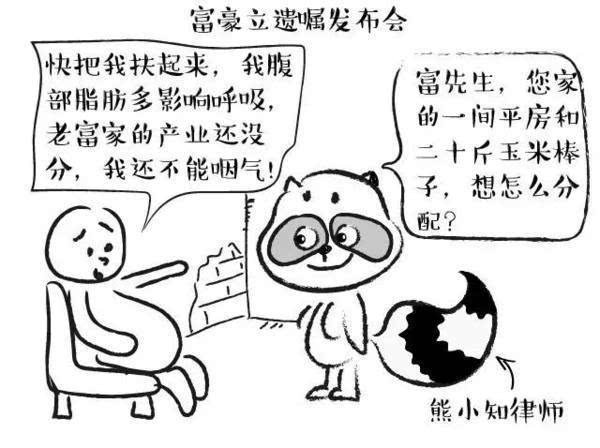 富豪立遗嘱发布会
快把我扶起来，我腹
部脂肪多影响呼吸，
老富家的产业还没
分，我还不能咽气！
富先生，您家
的一间平房和
二十斤玉米棒
子，想怎么分
配？
熊小知律师